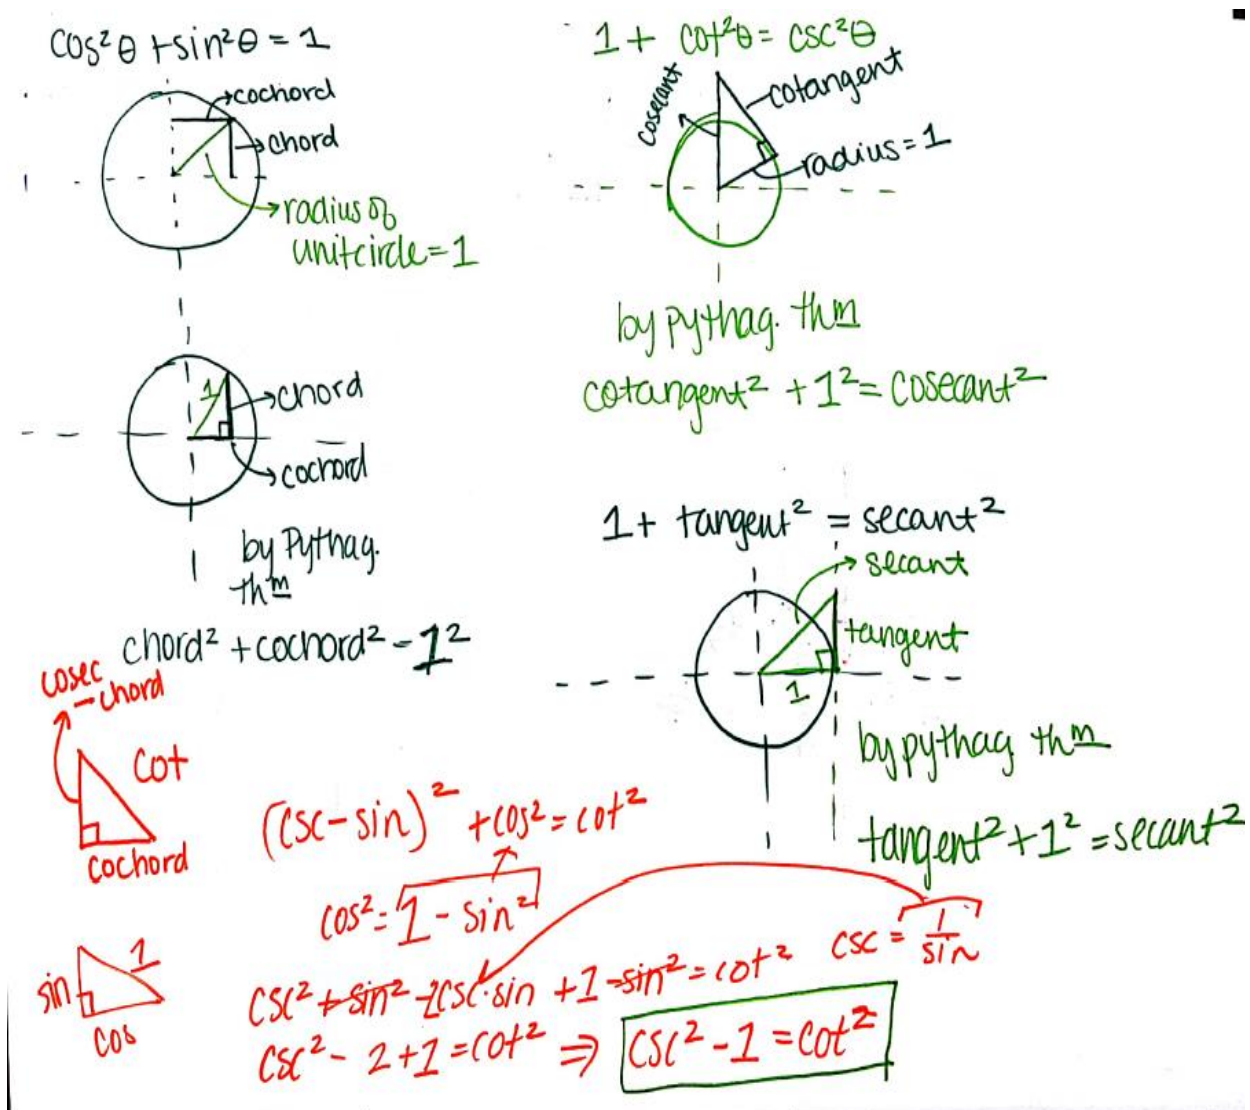 cos²θ + sin²θ = 1
cochord
chord
radius of
unit circle = 1
1
chord
cochord
by Pythag.
thm
chord² + cochord² = 1²
1 + cot²θ = csc²θ
cosecant
cotangent
radius = 1
by pythag. thm
cotangent² + 1² = cosecant²
1 + tangent² = secant²
secant
tangent
1
by pythag thm
tangent² + 1² = secant²
cosec
- chord
cot
cochord
(csc - sin)² + cos² = cot²
cos² = 1 - sin²
csc = 1/sin
sin
1
cos
csc² + sin² - 2csc·sin + 1 - sin² = cot²
csc² - 2 + 1 = cot² ⇒ csc² - 1 = cot²